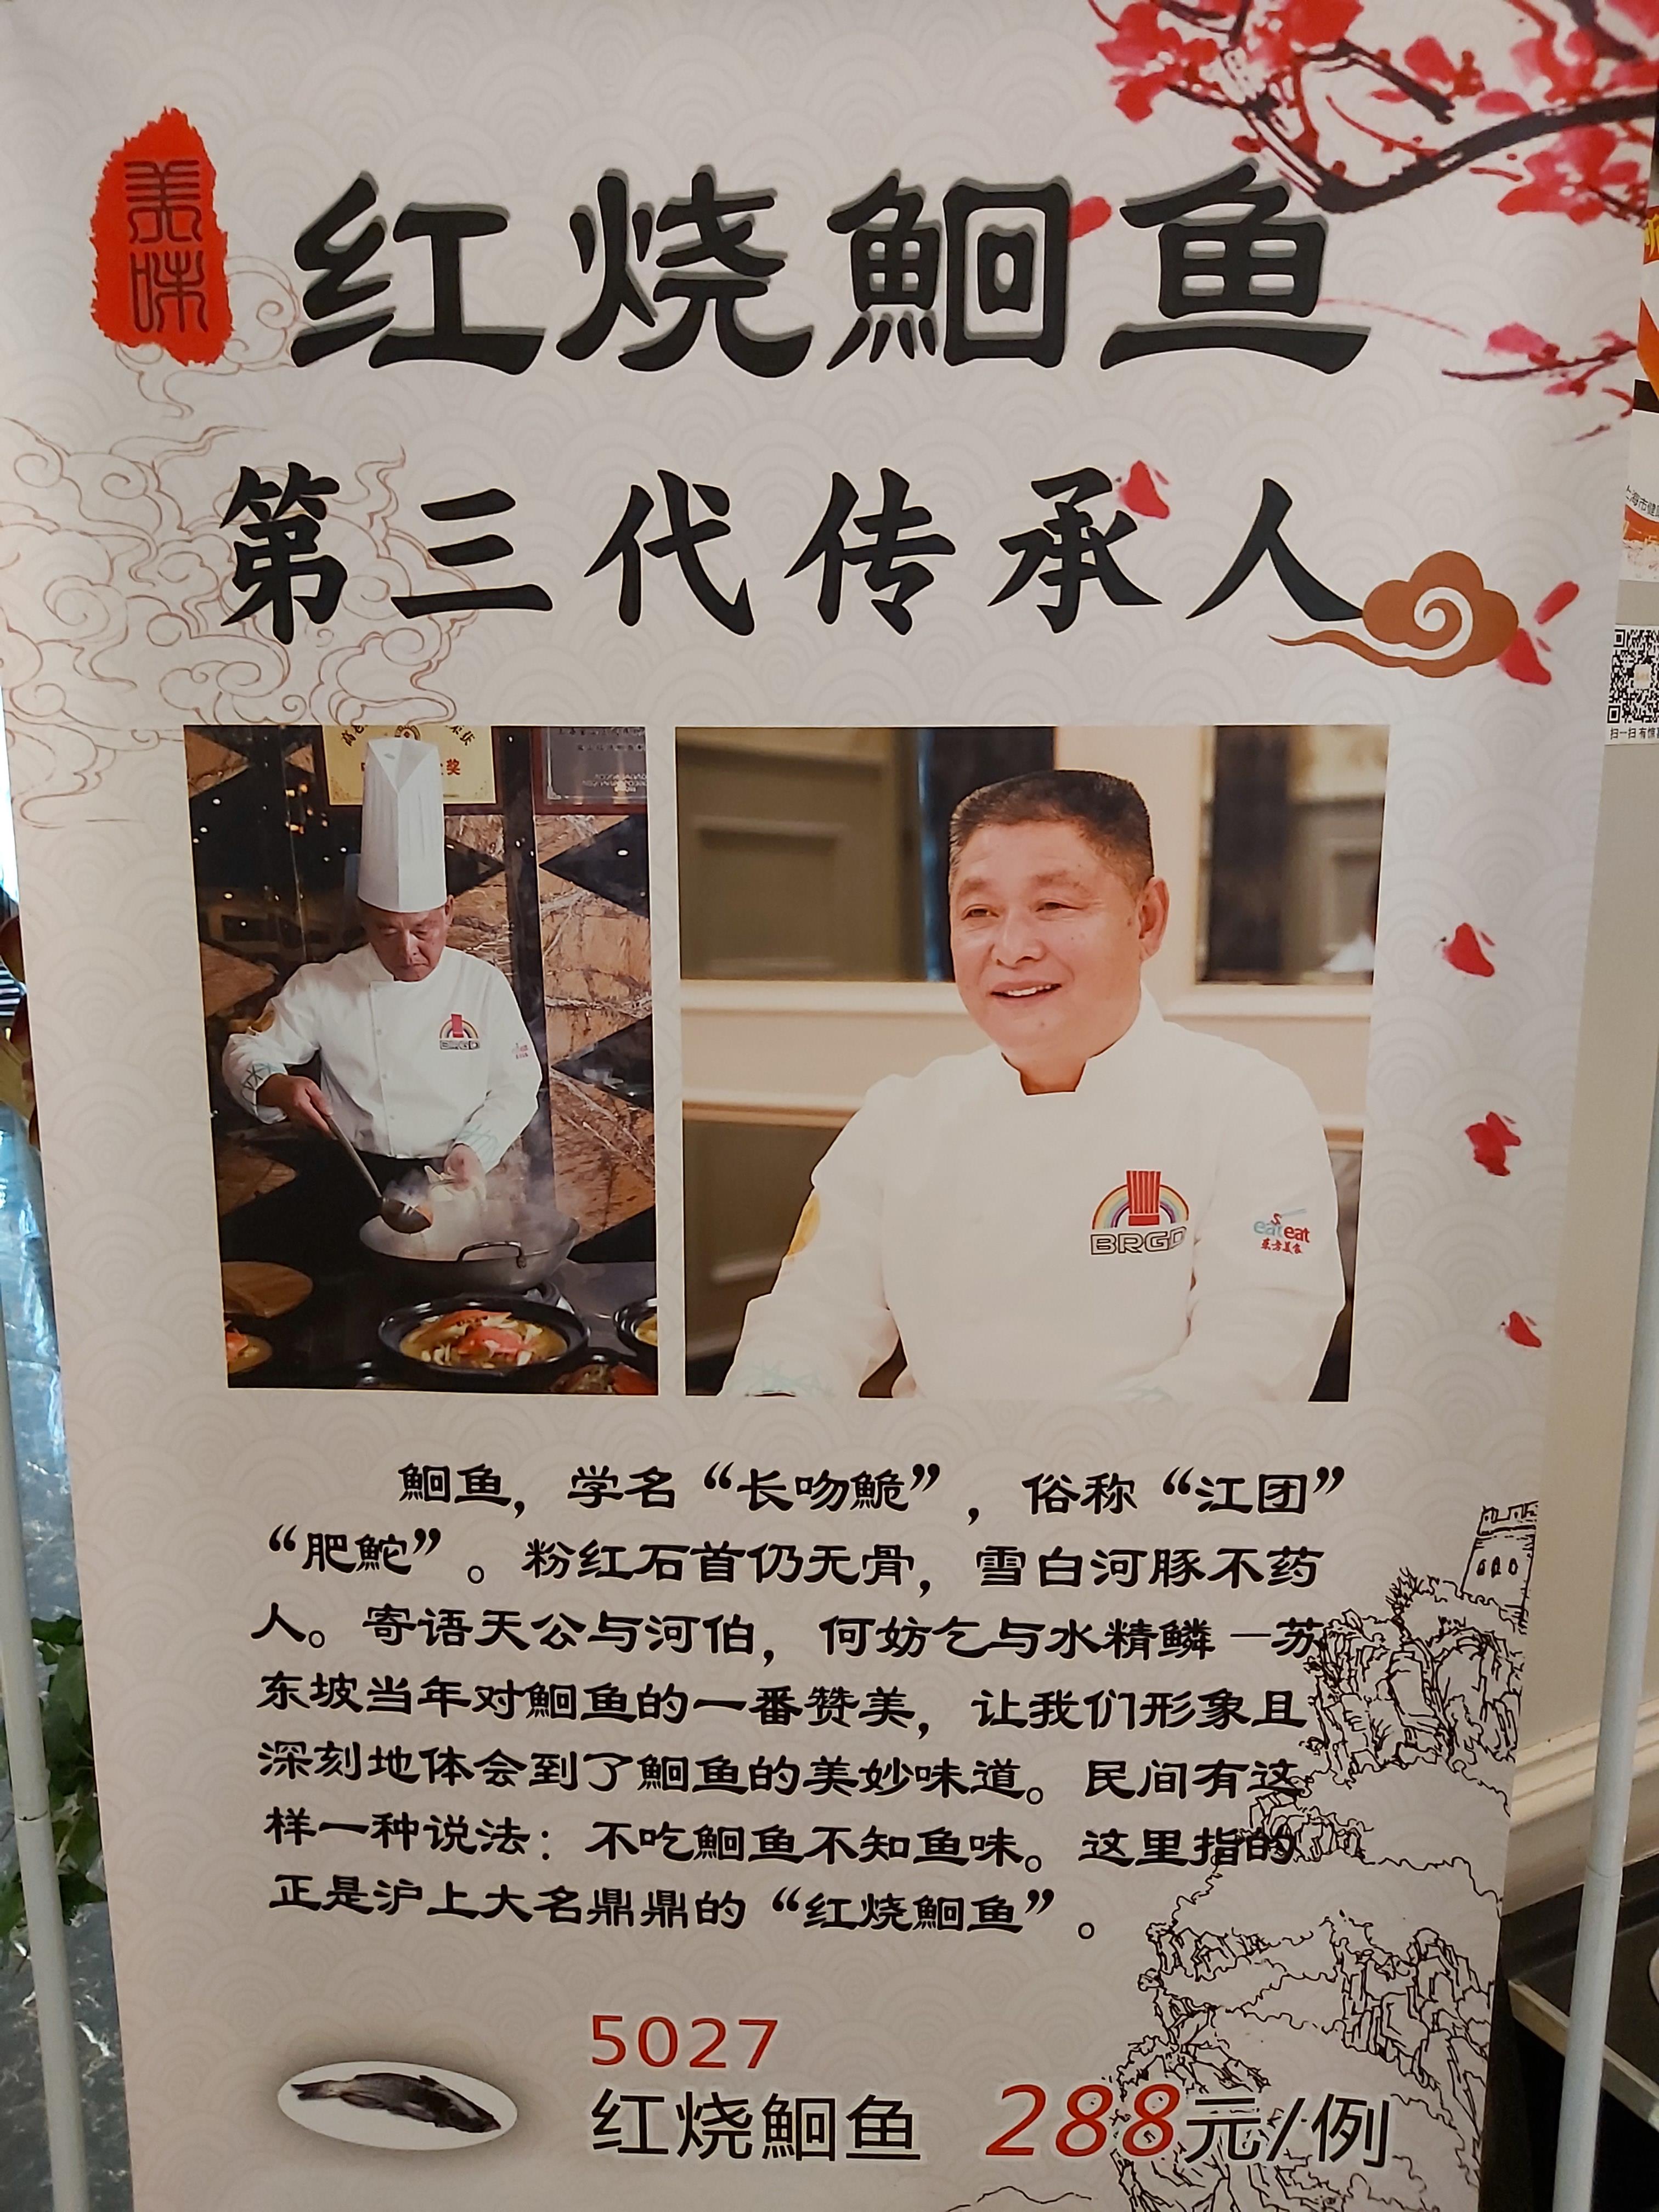 美味
红烧鮰鱼
第三代传承人
BRGD
eateat
东方美食
鮰鱼，学名“长吻鮠”，俗称“江团”
“肥鮀”。粉红石首仍无骨，雪白河豚不药
人。寄语天公与河伯，何妨乞与水精鳞—苏
东坡当年对鮰鱼的一番赞美，让我们形象且
深刻地体会到了鮰鱼的美妙味道。民间有这
样一种说法：不吃鮰鱼不知鱼味。这里指的
正是沪上大名鼎鼎的“红烧鮰鱼”。
5027
红烧鮰鱼 288元/例
上海市健
扫一扫 有惊